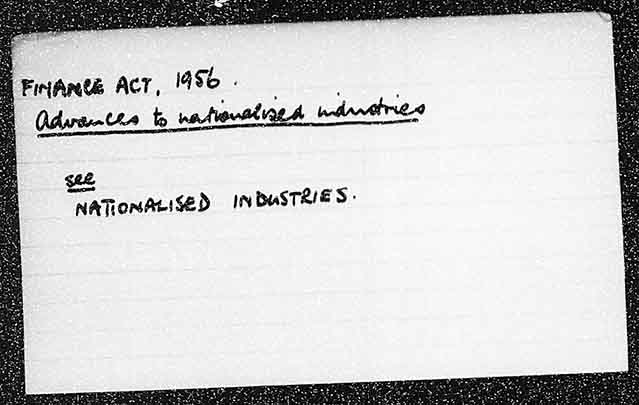 FINANCE ACT, 1956.
Advances to nationalised industries
see
NATIONALISED INDUSTRIES.